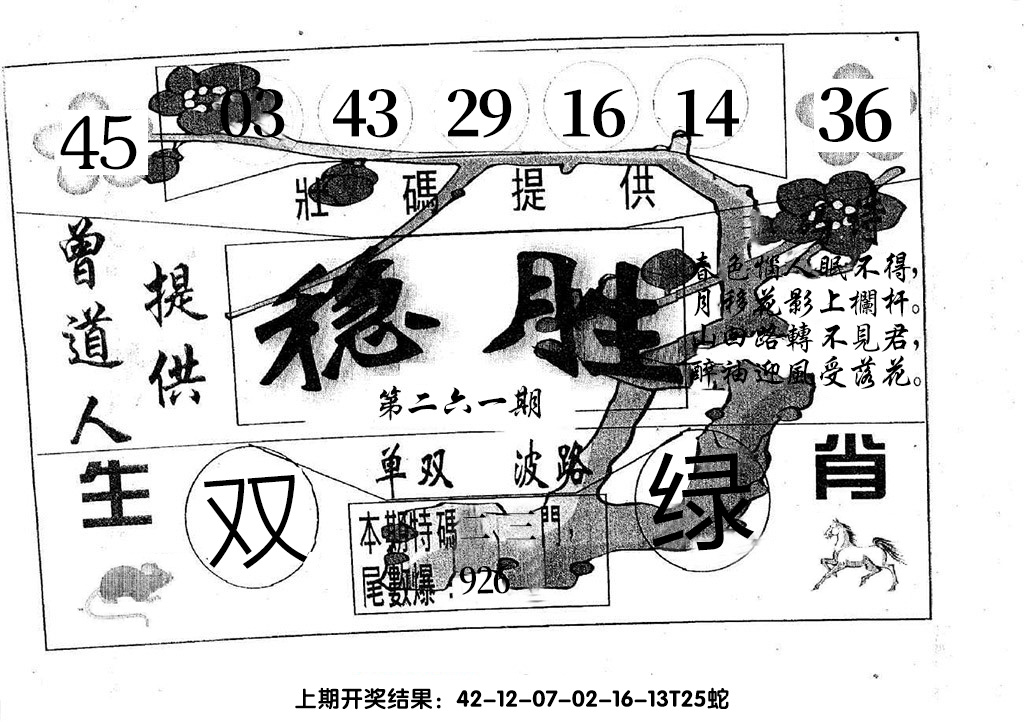 45 03 43 29 16 14 36
壯碼提供
曾道人
提供
稳胜
第二六一期
春色惱人眠不得，
月移花影上欄杆。
山回路轉不見君，
醉袖迎風受落花。
单双 波路
生肖
双
绿
本期特碼二、三門，
尾數爆：926
上期开奖结果：42-12-07-02-16-13T25蛇